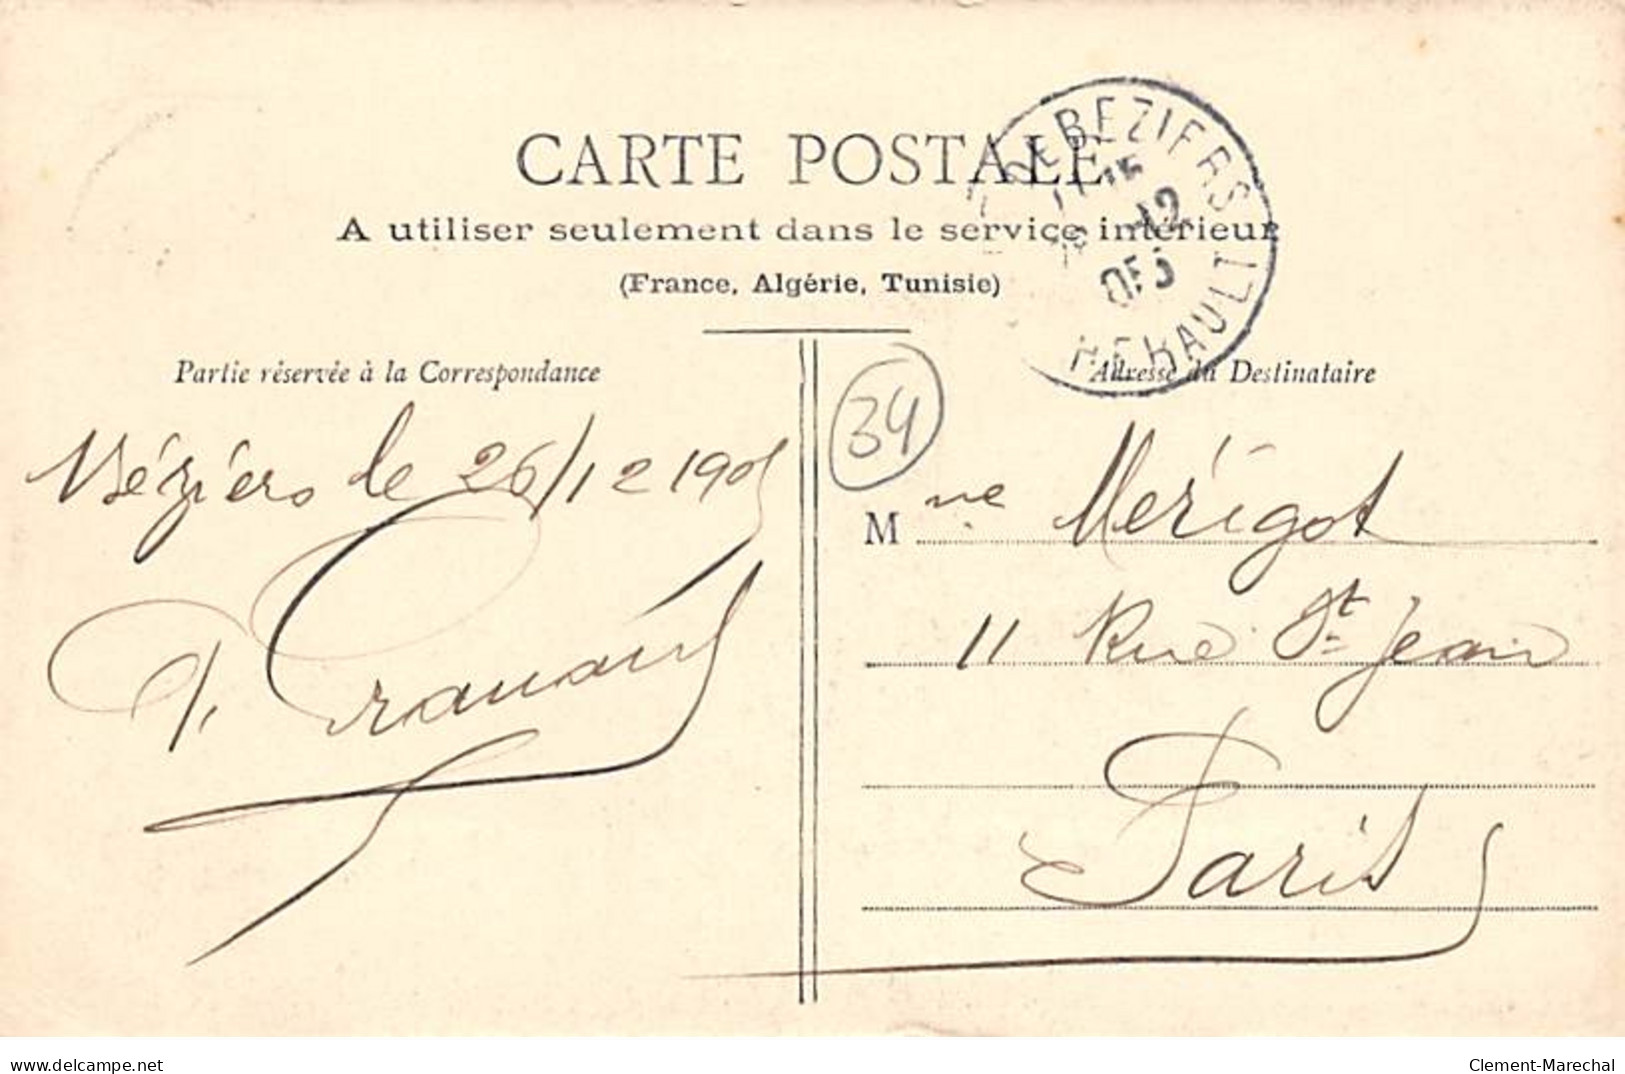 CARTE POSTALE
A utiliser seulement dans le service intérieur
(France, Algérie, Tunisie)
BEZIERS
12
05
HERAULT
Partie réservée à la Correspondance
Béziers le 26/12 1905
34
Adresse du Destinataire
Mme Mérigot
11 Rue St Jean
Paris
delcampe.net
Clement-Marechal